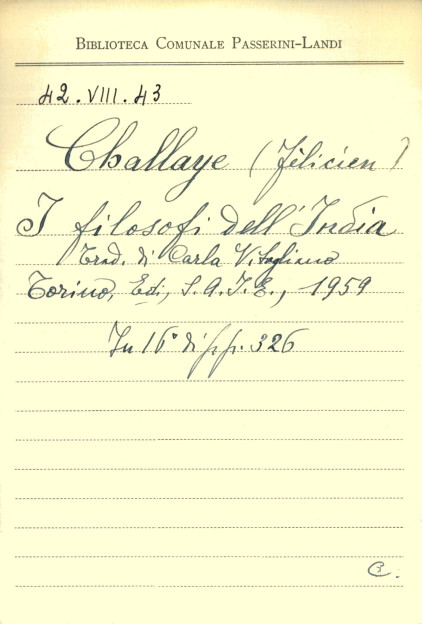 BIBLIOTECA COMUNALE PASSERINI-LANDI
42.VIII.43
Challaye (Félicien)
I filosofi dell'India
Trad. di Carla Vitagliano
Torino, Edi, S.A.I.E., 1959
In 16° di pp. 326
C.